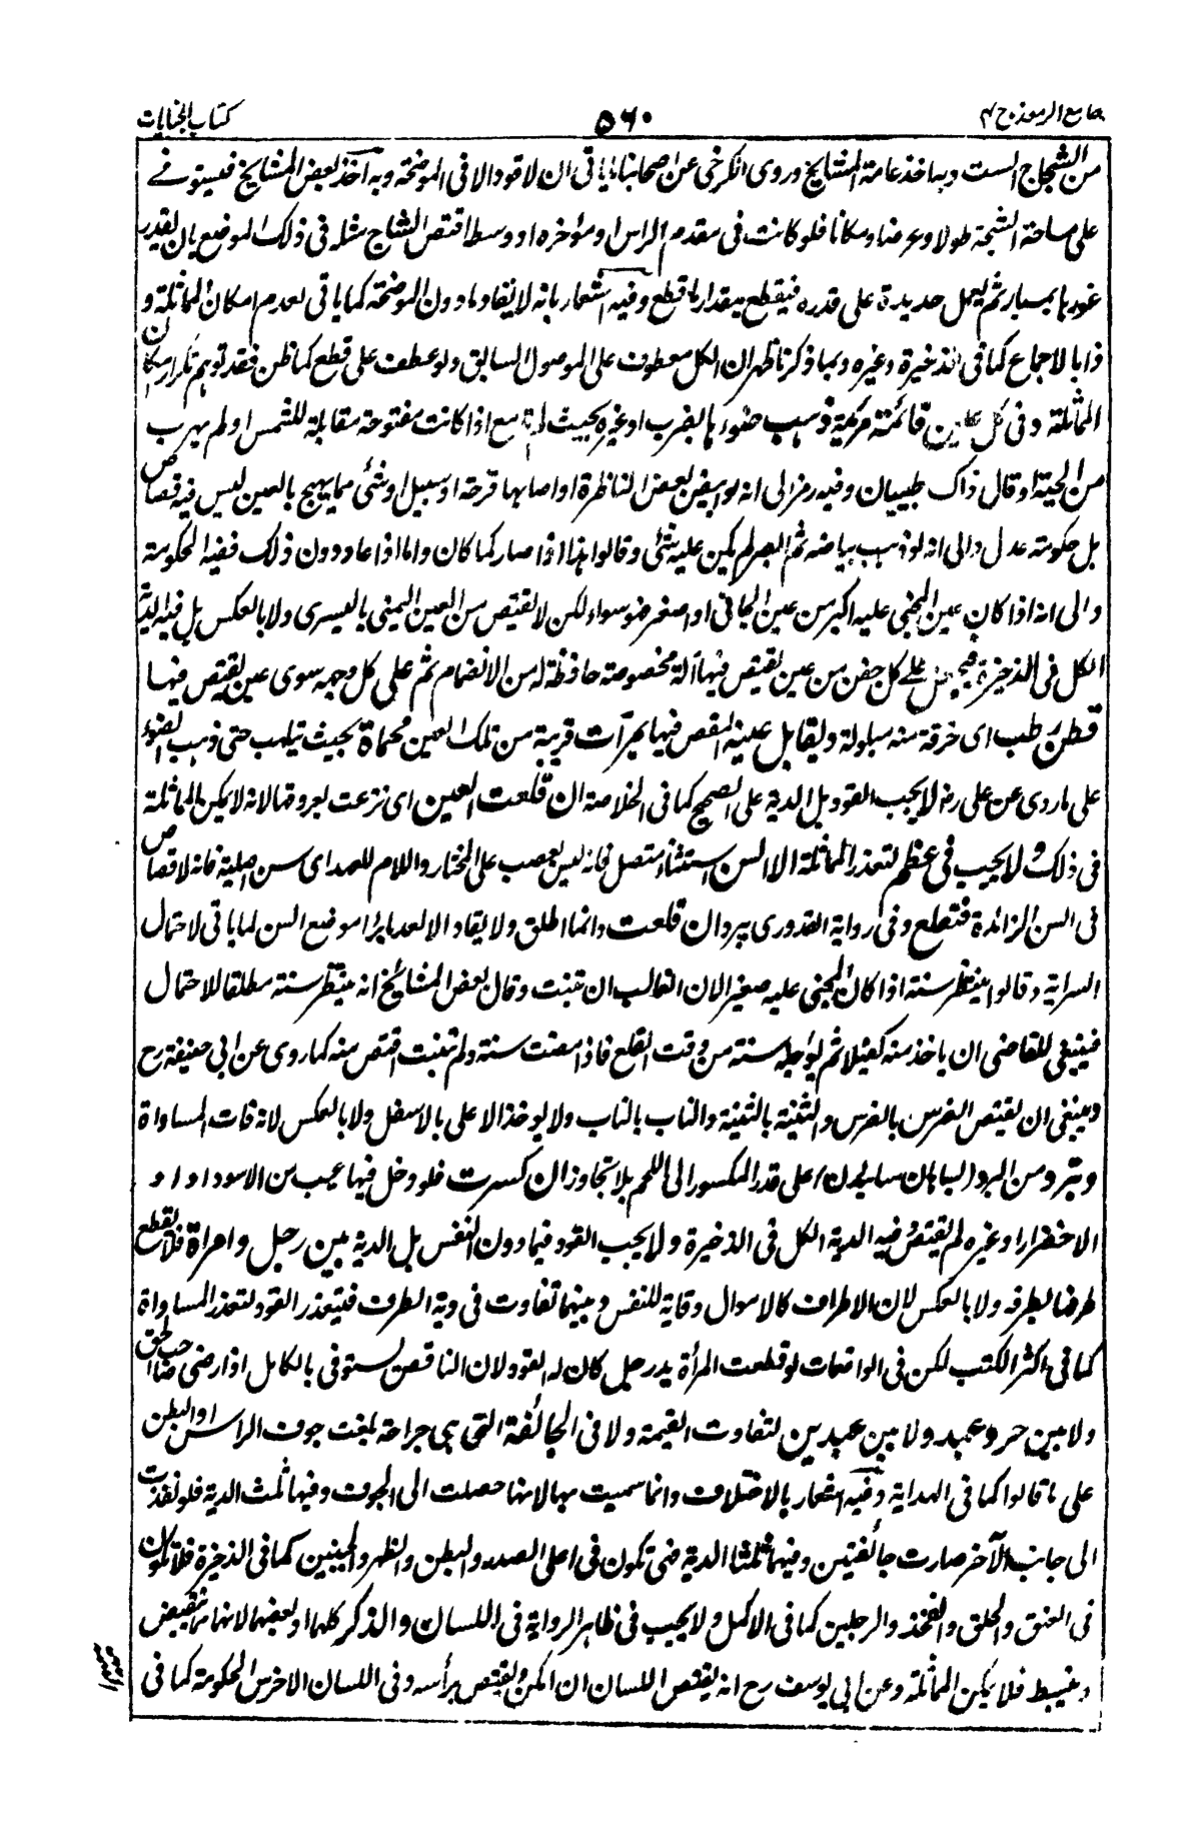 جامع الرموز ج ٤
٥٦٠
كتاب الجنايات
من الشجاج الست وبه اخذ عامة المشايخ وروى الكرخى عن اصحابنا ان لا قود الا فى الموضحة وبه اخذ بعض المشايخ فيستوفے
على مساحة الشجة طولا وعرضا ومكانا فلو كانت فى مقدم الراس او مؤخره او وسط اقتص الشاج مثله فى ذلك الموضع بان يقدر
غورها بمسبار ثم يعمل حديدة على قدره فيقطع بمقدار ما قطع وفيه اشعار بانه لا يقاد ما دون الموضحة كما ياتى لعدم امكان المماثلة و
ذا بالاجماع كما فى الذخيرة وغيره وبما ذكرنا ظهر ان الكل معطوف على الموصول السابق ولو عطف على قطع كما ظن فقد توهم تكرار امكان
المماثلة وفى كل عين قائمة مرئية ذهب ضوءها بالضرب او غيره بحيث لم تدمع اذا كانت مفتوحة مقابلة للشمس او لم يهرب
من الحية او قال ذاك طبيبان وفيه رمز الى انه لو ابيض بعض الناظرة او اصابها قرحة او سبل او شئ مما يهيج بالعين ليس فيه قصاص
بل حكومة عدل والى انه لو ذهب بياضه ثم ابصر لم يكن عليه شئ وقالوا هذا اذا صار كما كان واما اذا عاد دون ذلك ففيه الحكومة
والى انه اذا كان عين المجنى عليه اكبر من عين الجانى او اصغر فهو سواء لكن لا يقتص من العين اليمنى باليسرى ولا بالعكس بل فيه الدية
الكل فى الذخيرة فيجعل على كل جفن من عين يقتص فيها آلة مخصوصة حافظة له من الانضمام ثم على كل وجهه سوى عين يقتص فيها
قطن رطب اى خرقة منه مبلولة ويقابل عينه المقتص فيها بمرآت قريبة من تلك العين محماة بحيث تيلهب حتى ذهب الضوء
على ما روى عن على رض لا يجب القود بل الدية على الصحيح كما فى الخلاصة ان قلعت العين اى نزعت بعروقها لانه لا يمكن المماثلة
فى ذلك و لا يجب فى عظم لتعذر المماثلة الا السن استثناء متصل فانه ليس بعصب على المختار واللام للعهد اى سن اصلية فانه لا قصاص
فى السن الزائدة فتقلع وفى رواية القدورى يبرد ان قلعت وانما اطلق ولا يقاد الا بعد ابراء موضع السن لما ياتى لاحتمال
السراية وقالوا ينتظر سنة اذا كان المجنى عليه صغيرا لان الغالب ان تنبت وقال بعض المشايخ انه ينتظر سنة مطلقا للاحتمال
فينبغى للقاضى ان ياخذ منه كفيلا ثم يؤجله سنة من وقت القلع فاذا مضت سنة ولم تنبت اقتص منه كما روى عن ابى حنيفة رح
وينبغى ان يقتص الضرس بالضرس والثنية بالثنية والناب بالناب ولا يوخذ الاعلى بالاسفل ولا بالعكس لانه فات المساواة
وتبرد من البرد على قدر المكسور الى اللحم بلا تجاوز ان كسرت فلو دخل فيها عيب من الاسوداد او
الاخضرار او غيره لم يقتص فيه الدية الكل فى الذخيرة ولا يجب القود فيما دون النفس بل الدية بين رجل وامراة فلا يقطع
طرفها لطرفه ولا بالعكس لان الاطراف كالاموال وقاية للنفس وبينهما تفاوت فى دية الطرف فيتعذر القود لتعذر المساواة
كما فى اكثر الكتب لكن فى الواقعات لو قطعت المرأة يد رجل كان له القود لان الناقص يستوفى بالكامل اذا رضى صاحب الحق
ولا بين حر وعبد ولا بين عبدين لتفاوت القيمة ولا فى الجائفة التى هى جراحة بلغت جوف الراس او البطن
على ما قالوا كما فى الهداية وفيه اشعار بالاختلاف وانما سميت بها لانها حصلت الى الجوف وفيها ثلث الدية فلو نفذت
الى جانب الآخر صارت جائفتين وفيهما ثلثا الدية فهى تكون فى اعلى الصدر والبطن والظهر والجنبين كما فى الذخيرة فلا تكون
فى العنق والحلق والفخذ والرجلين كما فى الاكمل ولا يجب فى ظاهر الرواية فى اللسان والذكر كلها او بعضها لانهما مما ينقبض
وينبسط فلا يمكن المماثلة وعن ابى يوسف رح انه يقتص اللسان ان امكن ويقتص برأسه وفى اللسان الاخرس الحكومة كما فى